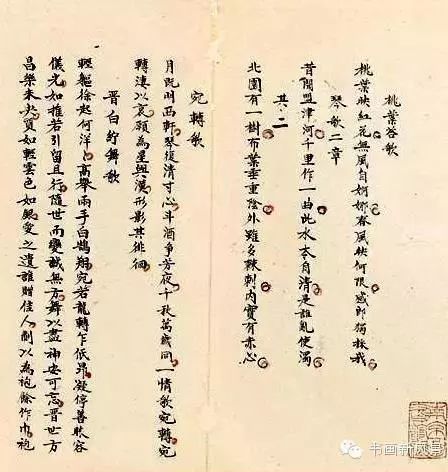 桃葉答歌
桃葉映紅花無風自婀娜春風映何限感郎獨採我
琴歌二章
昔聞盟津河千里作一曲此水本自清是誰亂使濁
其二
北園有一樹布葉垂重陰外雖多棘刺內實有赤心
宛轉歌
月既明西軒琴復清寸心斗酒爭芳夜千秋萬歲同一情歌宛轉宛
轉淒以哀願為星與漢形影共徘徊
晉白紵舞歌
輕軀徐起何洋々高舉兩手白鵠翔宛若龍轉乍低昂凝停善睞容
儀光如推若引留且行隨世而變誠無方舞以盡神安可忘晉世方
昌樂未央質如輕雲色如銀愛之遺誰贈佳人制以為袍餘作巾袍
书画新风